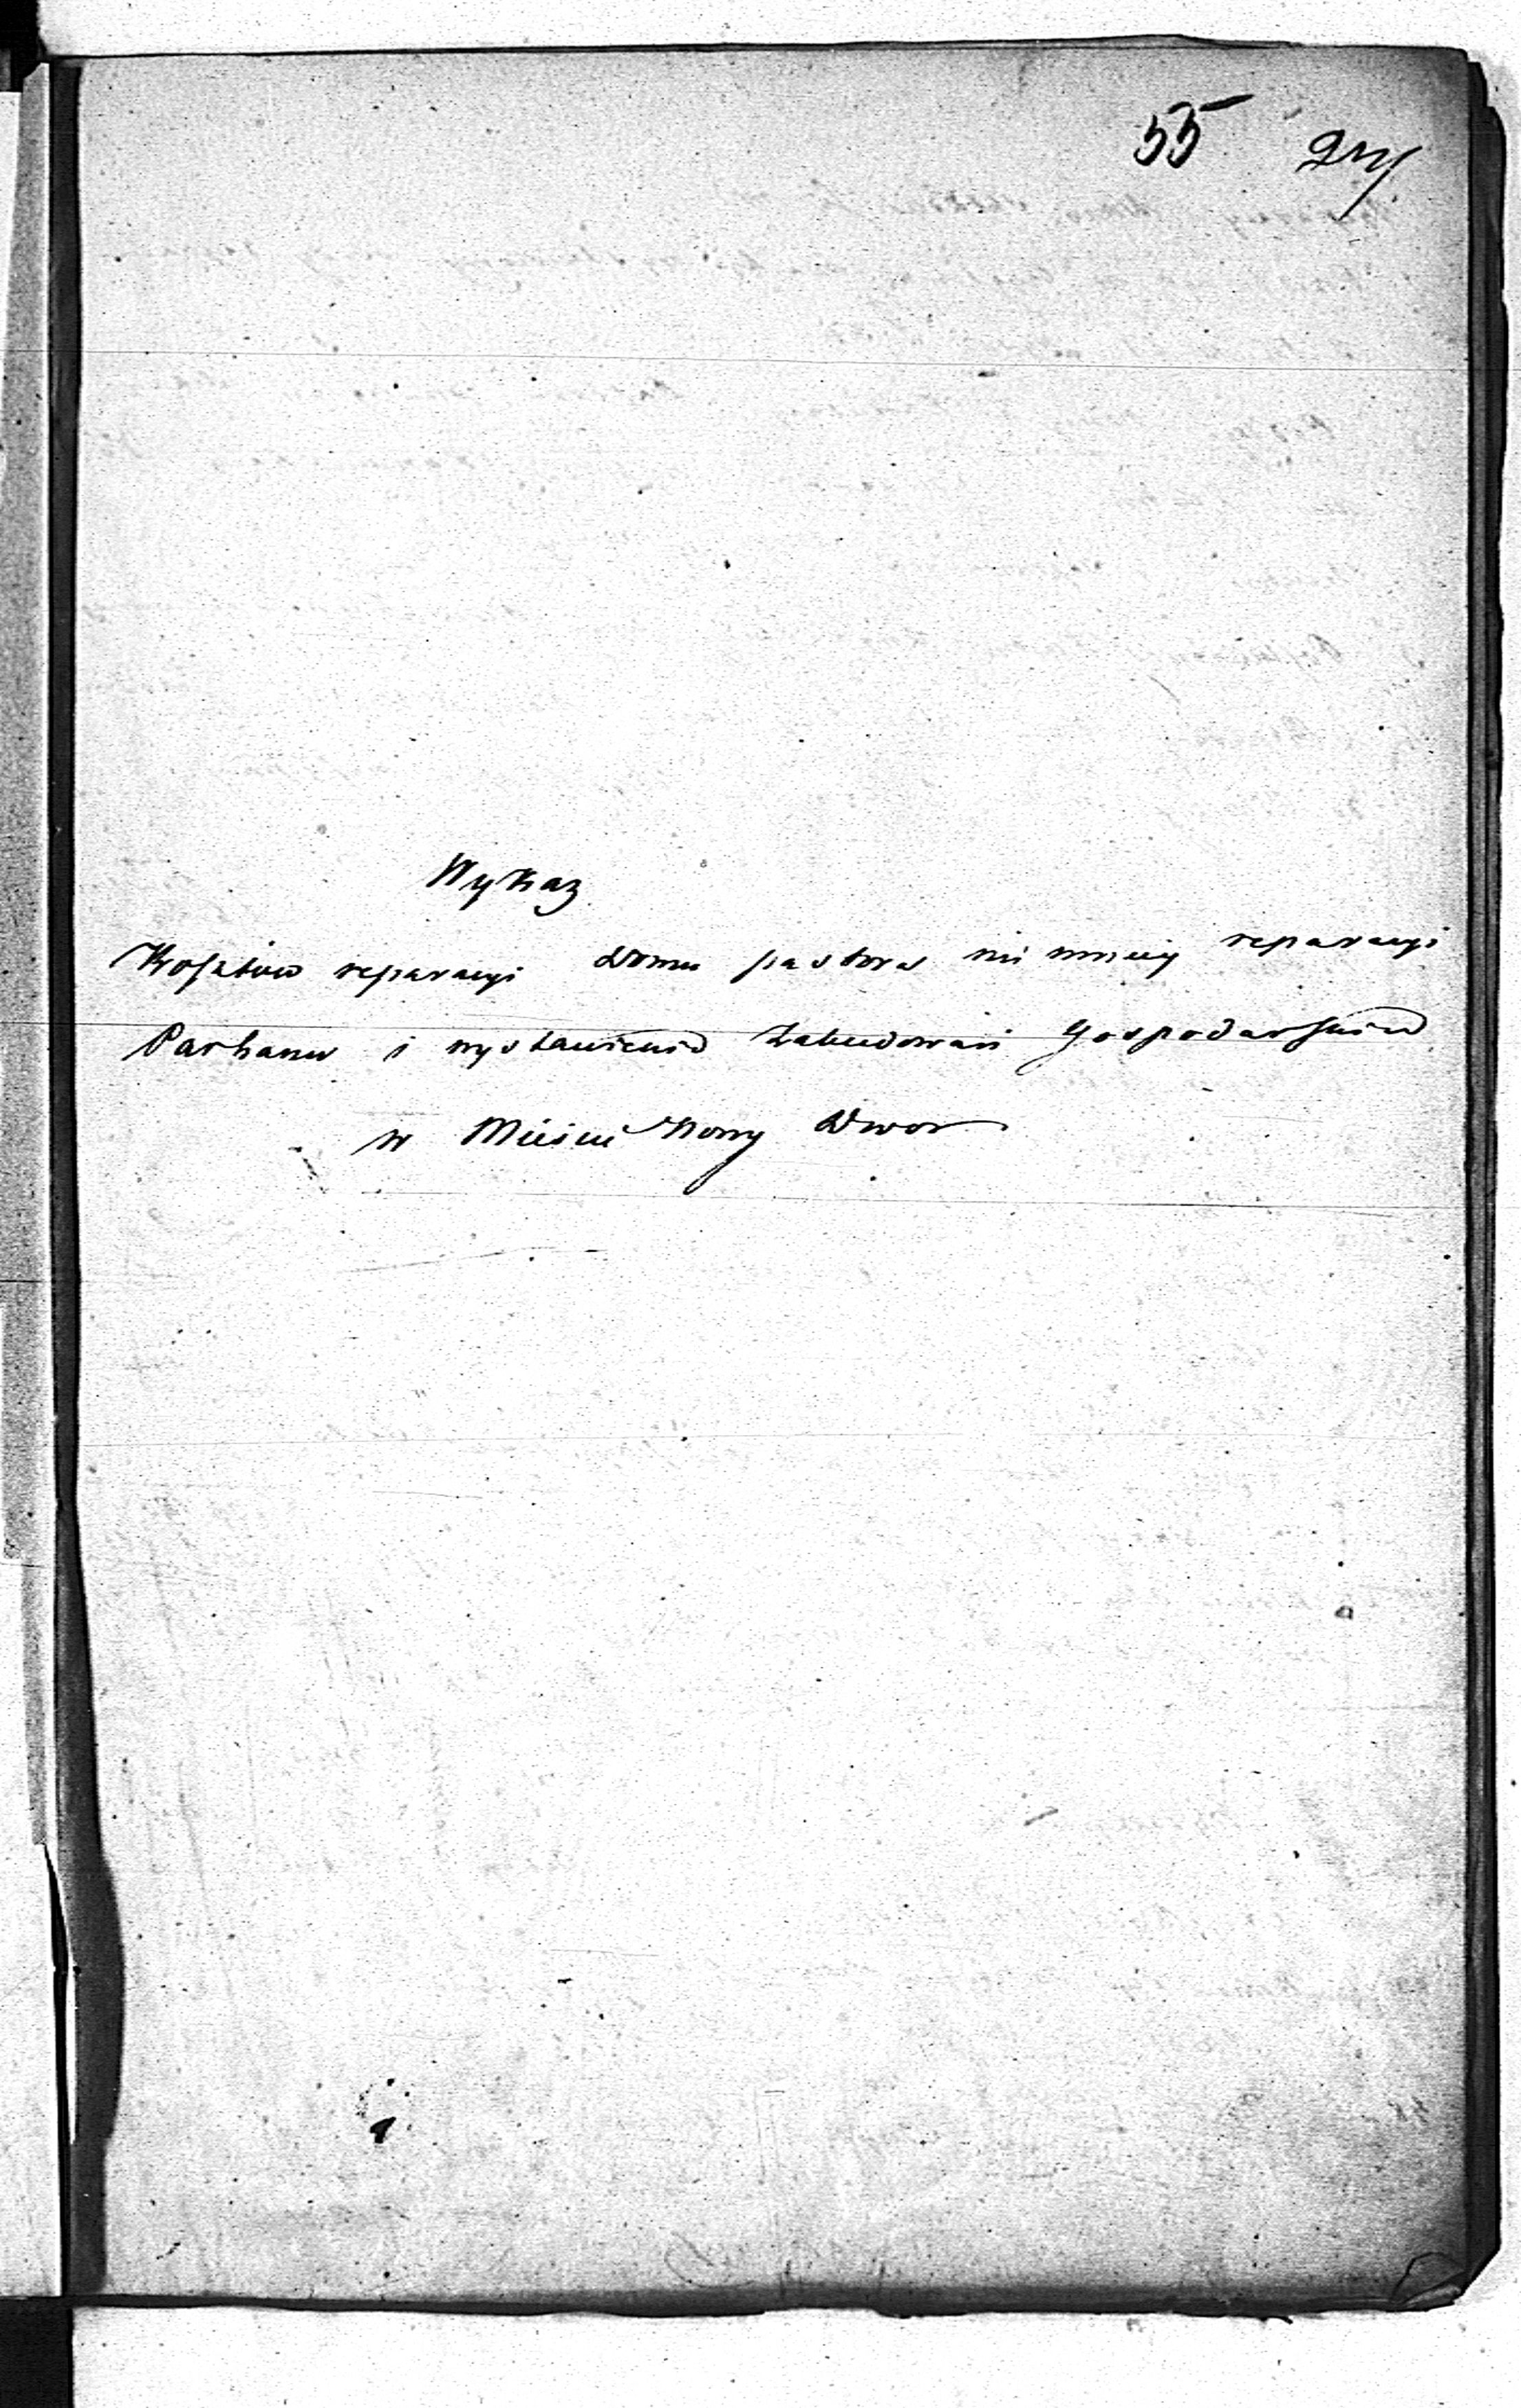 55 27
Wykaz
Kosztów reparacyi domu pastora nie mniéy reparacyi
Parkanu i wystawienia Zabudowań Gospodarskich
w Mieście Nowy Dwor